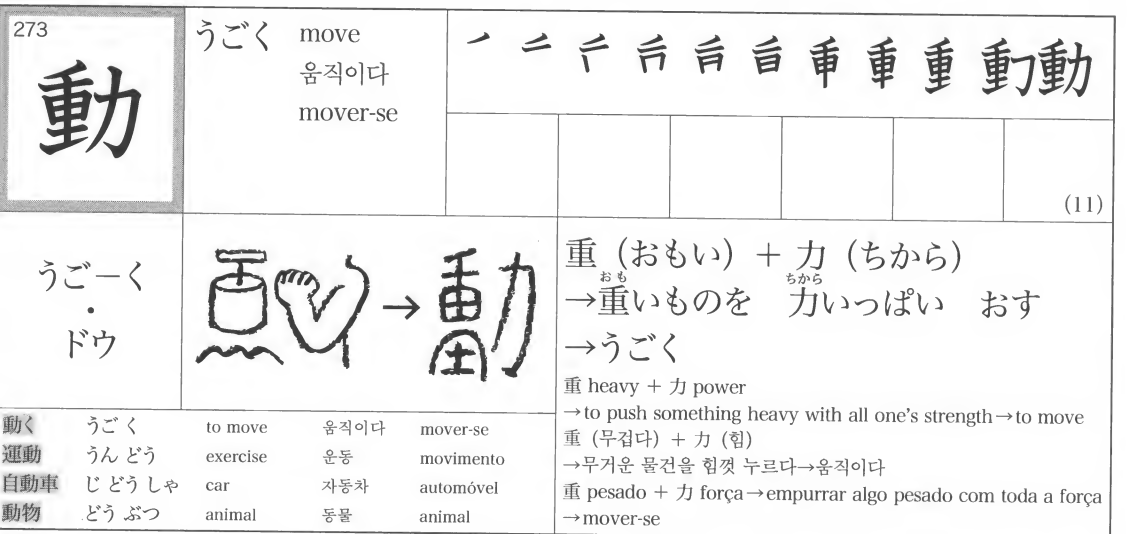 273
動
うごく move
움직이다
mover-se
(11)
うごーく
・
ドウ
→ 動
重（おもい）＋ 力（ちから）
→重いものを 力いっぱい おす
おも ちから
→うごく
重 heavy ＋ 力 power
→to push something heavy with all one's strength→to move
重（무겁다）＋ 力（힘）
→무거운 물건을 힘껏 누르다→움직이다
重 pesado ＋ 力 força→empurrar algo pesado com toda a força
→mover-se
動く うご く to move 움직이다 mover-se
運動 うん どう exercise 운동 movimento
自動車 じ どう しゃ car 자동차 automóvel
動物 どう ぶつ animal 동물 animal